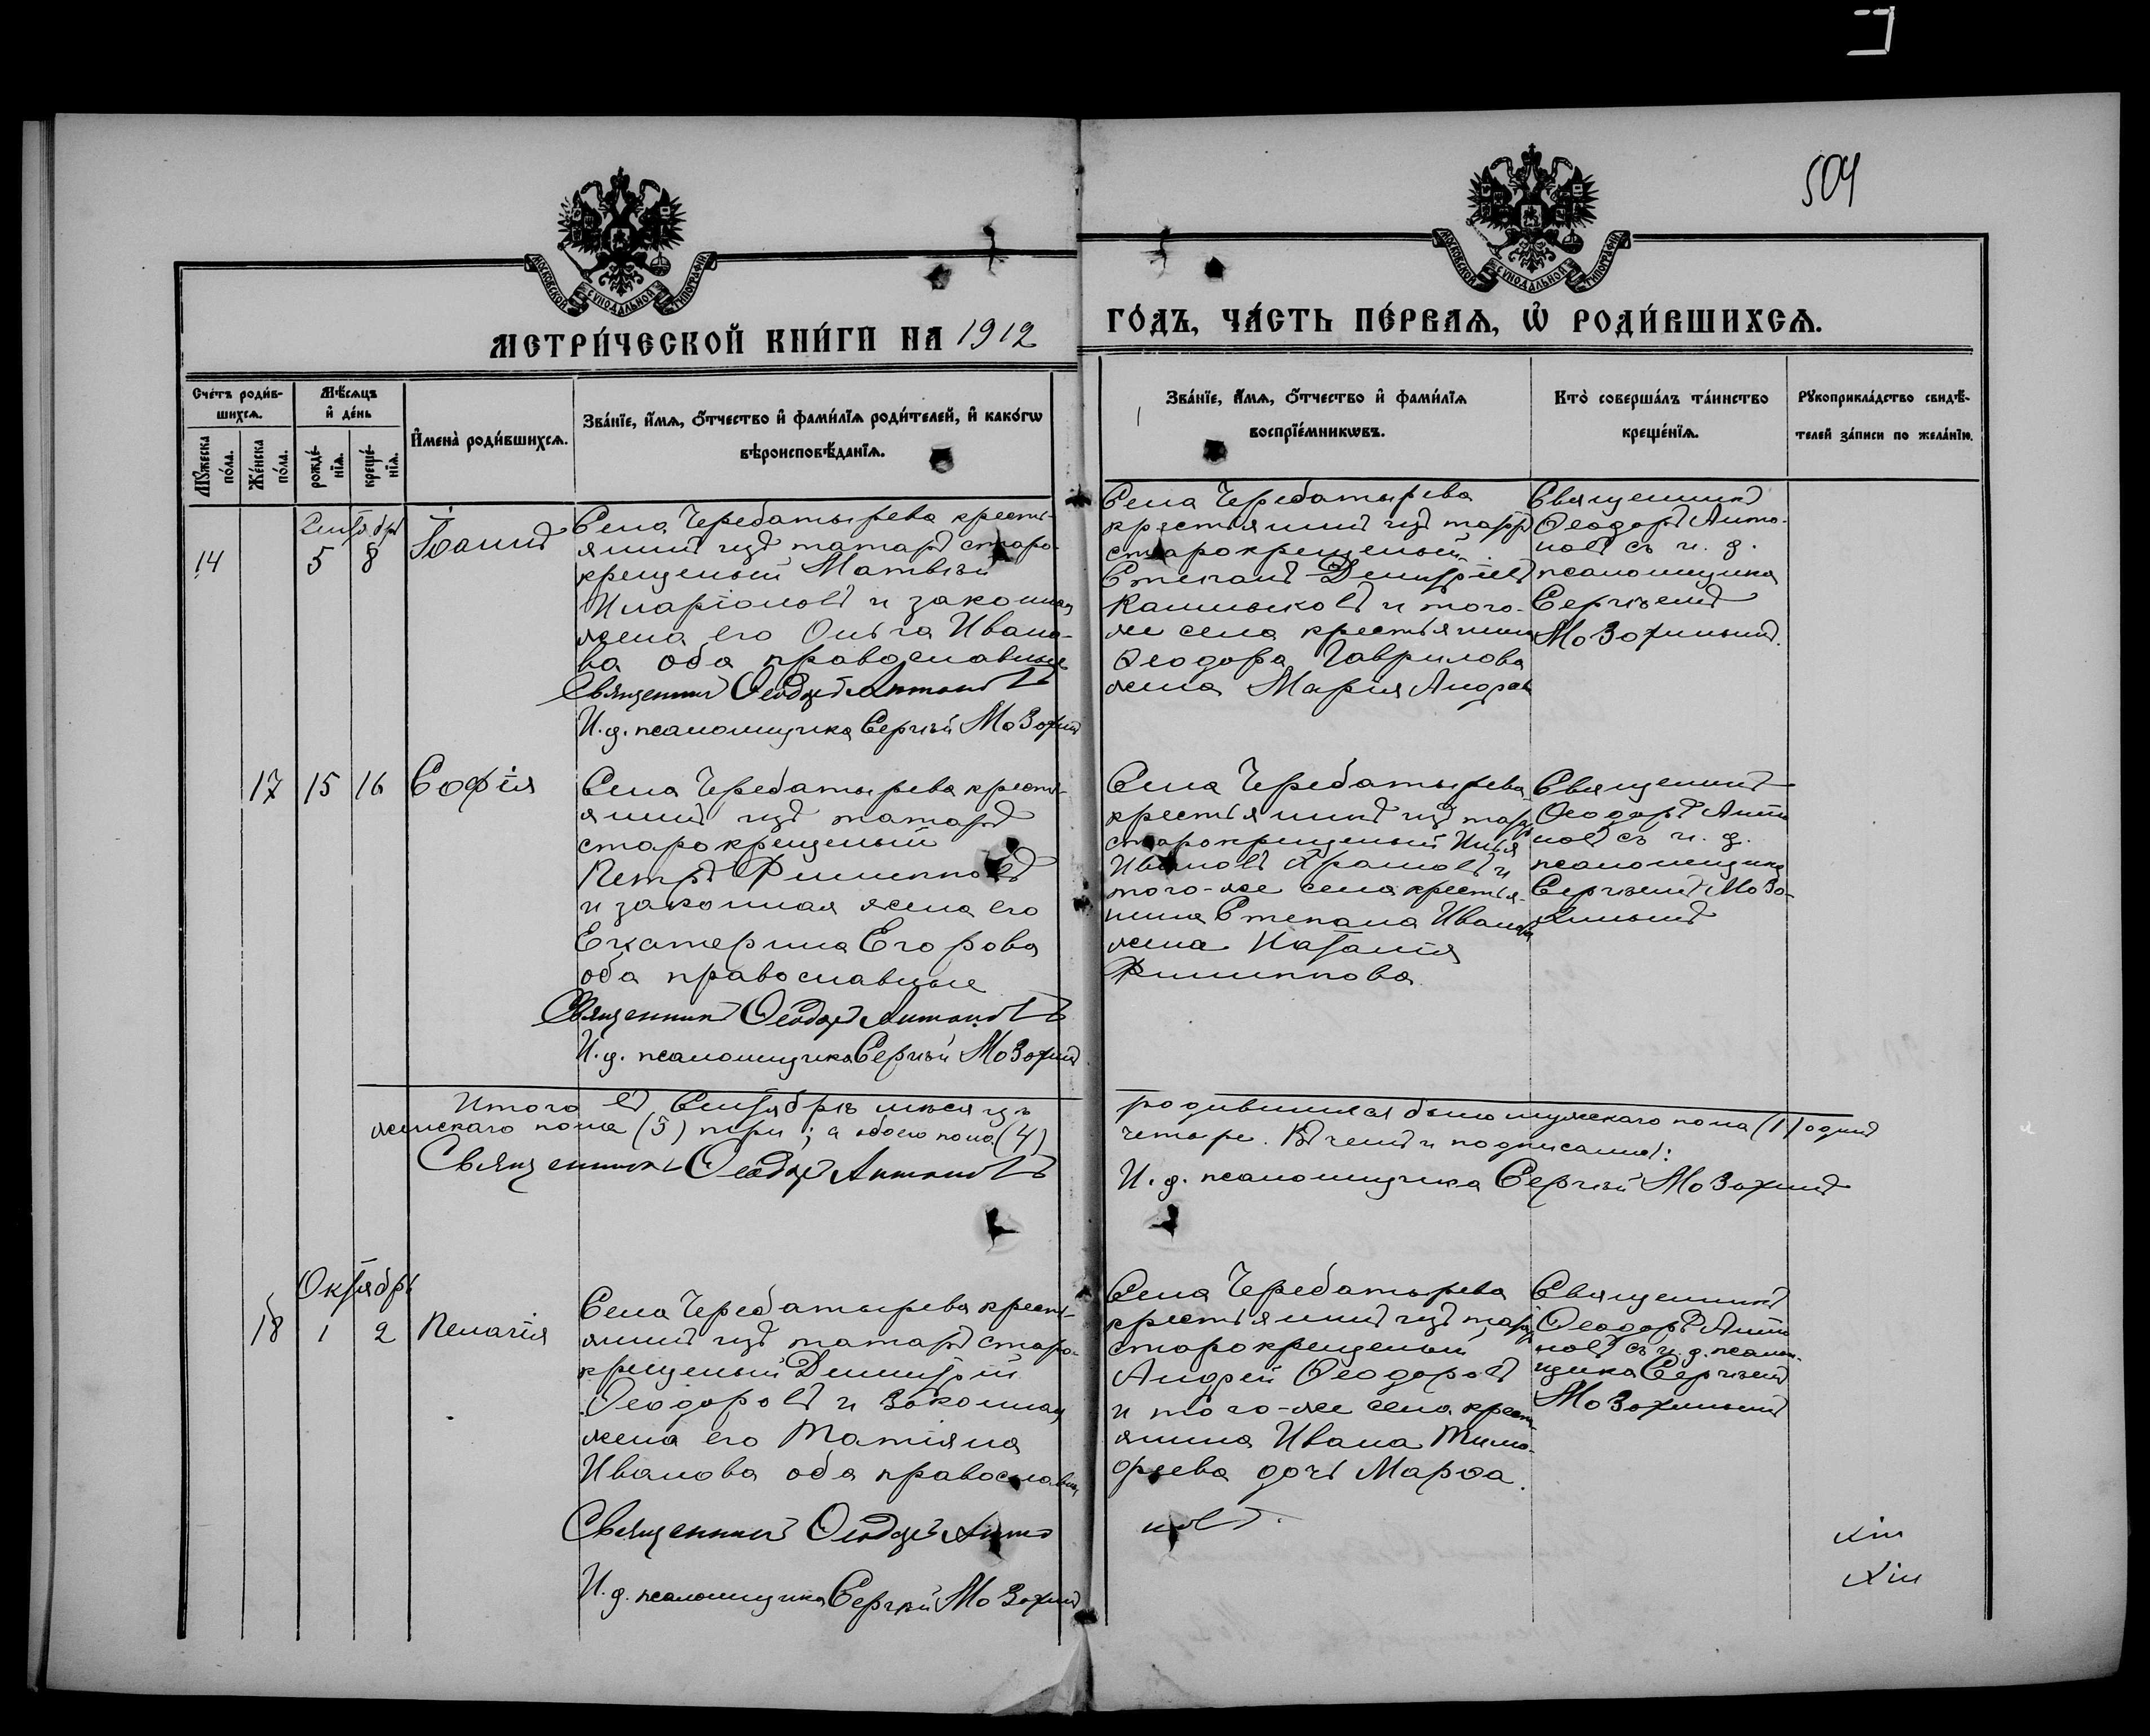 504
МОСКОВСКОЙ СѴНОДАЛЬНОЙ ТИПОГРАФІИ
МОСКОВСКОЙ СѴНОДАЛЬНОЙ ТИПОГРАФІИ
МЕТРИ́ЧЕСКОЙ КНИ́ГИ НА 1912
ГО́ДЪ, ЧА́СТЬ ПЕ́РВАЯ, Ѡ РОДИ́ВШИХСЯ.
Сче́тъ роди́в-
шихся.
Мꙋ́жеска
по́ла.
Же́нска
по́ла.
Мѣ́сяцъ
и де́нь
рожде́-
нїя.
креще́-
нїя.
И҆мена̀ роди́вшихся.
Зва́нїе, и҆́мя, о҆́тчество и҆ фами́лїя роди́телей, и҆ како́гѡ
вѣроисповѣ́данїя.
Зва́нїе, и҆́мя, о҆́тчество и҆ фами́лїя
воспрїе́мникѡвъ.
Кто̀ соверша́лъ та́инство
креще́нїя.
Рꙋкоприкла́дство свидѣ́-
телей за́писи по жела́нїю.
Сентябрь
14
5 8
Іоаннъ
Села Черебатырева кресть-
янинъ изъ татаръ старо-
крещеный Матвѣй
Иларіоновъ и законная
жена его Ольга Ивано-
ва оба православные
Священникъ Ѳеодоръ Антоновъ
И. д. псаломщика Сергѣй Мозохинъ
Села Черебатырева
крестьянинъ изъ татаръ
старокрещеный
Степанъ Димитріевъ
и того-
же села крестьянина
Ѳеодора Гаврилова
жена Марія Андрее
Священникъ
Ѳеодоръ Анто-
новъ съ и. д.
псаломщика
Сергѣемъ
Мозохинымъ.
17 15 16
Софія
Села Черебатырева кресть-
янинъ изъ татаръ
старокрещеный
Петръ Филипповъ
и законная жена его
Екатерина Егорова
оба православные
Священникъ Ѳеодоръ Антоновъ
И. д. псаломщика Сергѣй Мозохинъ
Села Черебатырева
крестьянинъ изъ татаръ
старокрещеный Илья
Ивановъ и
того-же села крестья-
нина Степана Иванова
жена Наталія
Филиппова
Священникъ
Ѳеодоръ Анто
новъ съ и. д.
псаломщика
Сергѣемъ Мозо-
хинымъ
Итого въ Сентябрѣ мѣсяцѣ родившихся было мужескаго пола (1) одинъ
женскаго пола (3) три; а обоего пола (4) четыре. Въ чемъ и подписались:
Священникъ Ѳеодоръ Антоновъ
И. д. псаломщика Сергѣй Мозохинъ
Октябрь
18 1 2
Пелагія
Села Черебатырева кресть-
янинъ изъ татаръ старо-
крещеный Димитрій
Ѳеодоровъ и законная
жена его Татіяна
Иванова оба православн
Священникъ Ѳеодоръ Анто
новъ.
И. д. псаломщика Сергѣй Мозохинъ
Села Черебатырева
крестьянинъ изъ татаръ
старокрещеный
Андрей Ѳеодоровъ
и того-же села кресть
янина Ивана Тимо-
ѳеева дочь Марѳа.
Священникъ
Ѳеодоръ Анто
новъ съ и. д. псалом-
щика Сергѣемъ
Мозохинымъ